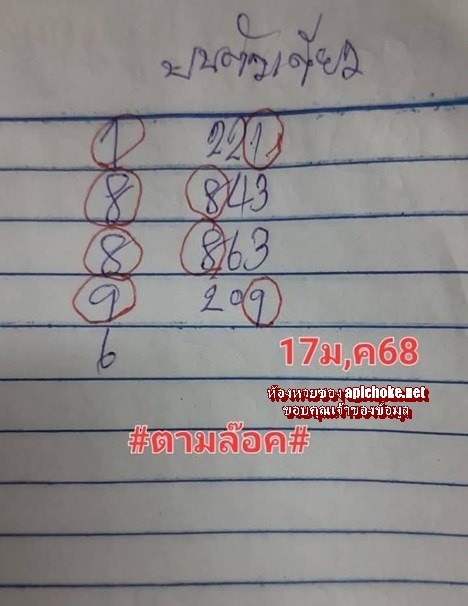 บนตัวเดียว
1 221
8 843
8 863
9 209
6
17ม,ค68
ห้องหวยซอง apichoke.net
ขอบคุณเจ้าของข้อมูล
#ตามล๊อค#